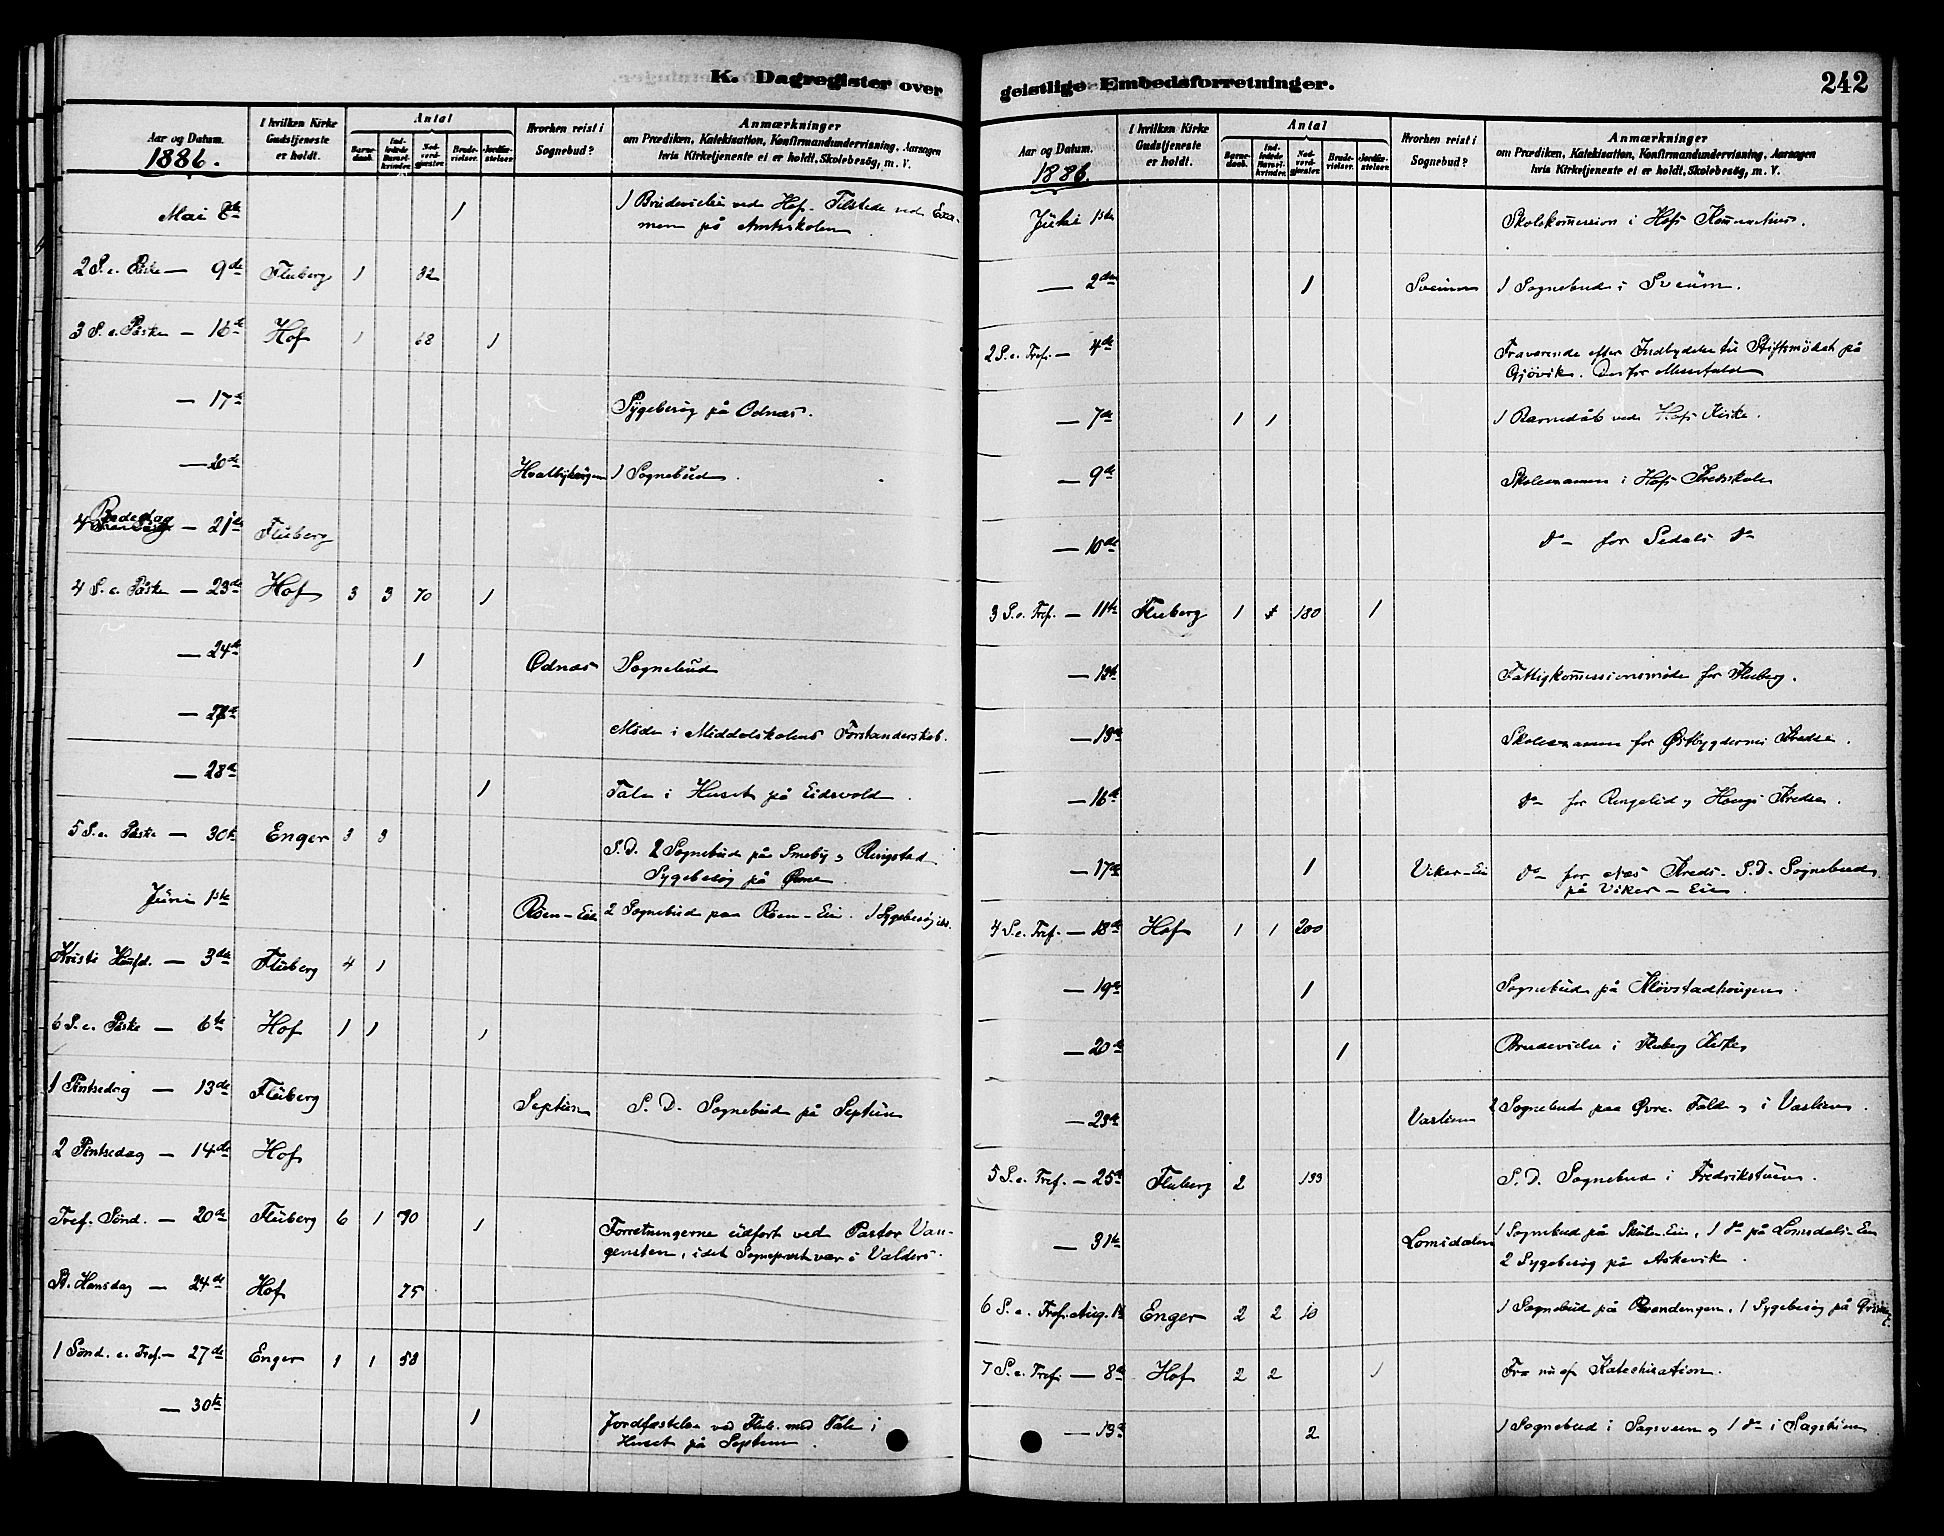 K. Dagregister over
Aar og Datum.
1886.
I hvilken Kirke Gudstjeneste er holdt.
Antal
Barne-daab.
Ind-ledede Barsel-kvinder.
Nad-verd-gjæster.
Brude-vielser.
Jordfæ-stelser.
Hvorhen reist i Sognebud?
Anmærkninger
om Prædiken, Katekisation, Konfirmandundervisning, Aarsagen
hvis Kirketjeneste ei er holdt, Skolebesög, m. V.
Mai 8de 1 1 Brudevielse ved Hof. Tilstede ved Exa-
men på Amtsskolen
2 S. e. Påske — 9de Fluberg 1 32
3 S. e. Påske — 16de Hof 1 68 1
— 17de Sygebesøg på Odnæs.
— 20de Hvalbyhaugen 1 Sognebud.
4 Bededag — 21de Fluberg
4 S. e. Påske — 23de Hof 3 3 70 1
— 24de 1 Odnæs Sognebud
— 27de Møde i Middelskolens Forstanderskab.
— 28de 1 Tale i Huset på Eidsvold.
5 S. e. Påske — 30te Enger 3 3 S. D. 2 Sognebud på Smeby og Ringstad
Sygebesøg på Øvre.
Juni 1ste Røen-Eie 2 Sognebud paa Røen-Eie. 1 Sygebesøg ibd.
Kristi Himfd. — 3de Fluberg 4 1
6 S. e. Påske — 6te Hof 1 1 1
1 Pintsedag — 13de Fluberg Septun S. D. Sognebud på Septun
2 Pintsedag — 14de Hof
Tref. Sønd. — 20de Fluberg 6 1 90 1 Forretningerne udført ved Pastor Van-
gensten, idet Sognepræst var i Valders.
St. Hansdag — 24de Hof 75
1 Sønd. e. Tref. — 27de Enger 1 1 58
— 30te 1 Jordfæstelse ved Flub. med Tale i
Huset på Septun.
geistlige Embedsforretninger.
242
Aar og Datum.
1886.
I hvilken Kirke Gudstjeneste er holdt.
Antal
Barne-daab.
Ind-ledede Barsel-kvinder.
Nad-verd-gjæster.
Brude-vielser.
Jordfæ-stelser.
Hvorhen reist i Sognebud?
Anmærkninger
om Prædiken, Katekisation, Konfirmandundervisning, Aarsagen
hvis Kirketjeneste ei er holdt, Skolebesög, m. V.
Juli 1ste Skolekommission i Hofs
— 2den 1 Sveum 1 Sognebud i Sveum.
2 S. e. Tref. — 4de Fraværende efter Indbydelse til Stiftsmødet på
Gjövik. Derfor Messefald
— 7de 1 1 1 Barnedåb ved Hofs Kirke.
— 9de Skoleexamen i Hofs Kredsskole
— 10de do for Sedals do
3 S. e. Tref. — 11te Fluberg 1 180 1
— 13de Fattigkommissionsmøde for Fluberg.
— Skoleexamen for Østbygdernes Kredse.
— 16de do for Ringelid og Haugs Kredse.
— 17de 1 Viker-Eie do for Næs Kreds. S. D. Sognebud
på Viker-Eie.
4 S. e. Tref. — 18de Hof 1 1 200
— 19de 1 Sognebud på Kløvstadhougen.
— 20de 1 Brudevielse i Fluberg Kirke
— Vaslien 2 Sognebud paa Øvre. Fald og i Vaslien.
5 S. e. Tref. — 25de Fluberg 2 133 S. D. Sognebud i Fredrikstuen.
— 31te Lomsdalen 1 Sognebud på Skute-Eie, 1 do på Lomsdals-Eie
2 Sygebesøg på Askevik.
6 S. e. Tref. Aug. 1ste Enger 2 2 10 1 Sognebud på Brandengen. 1 Sygebesøg på
7 S. e. Tref. — 8de Hof 2 2 1 Fra nu af Katechisation.
— 13de 2 1 Sognebud i Sagsveen og 1 do i Sagstuen